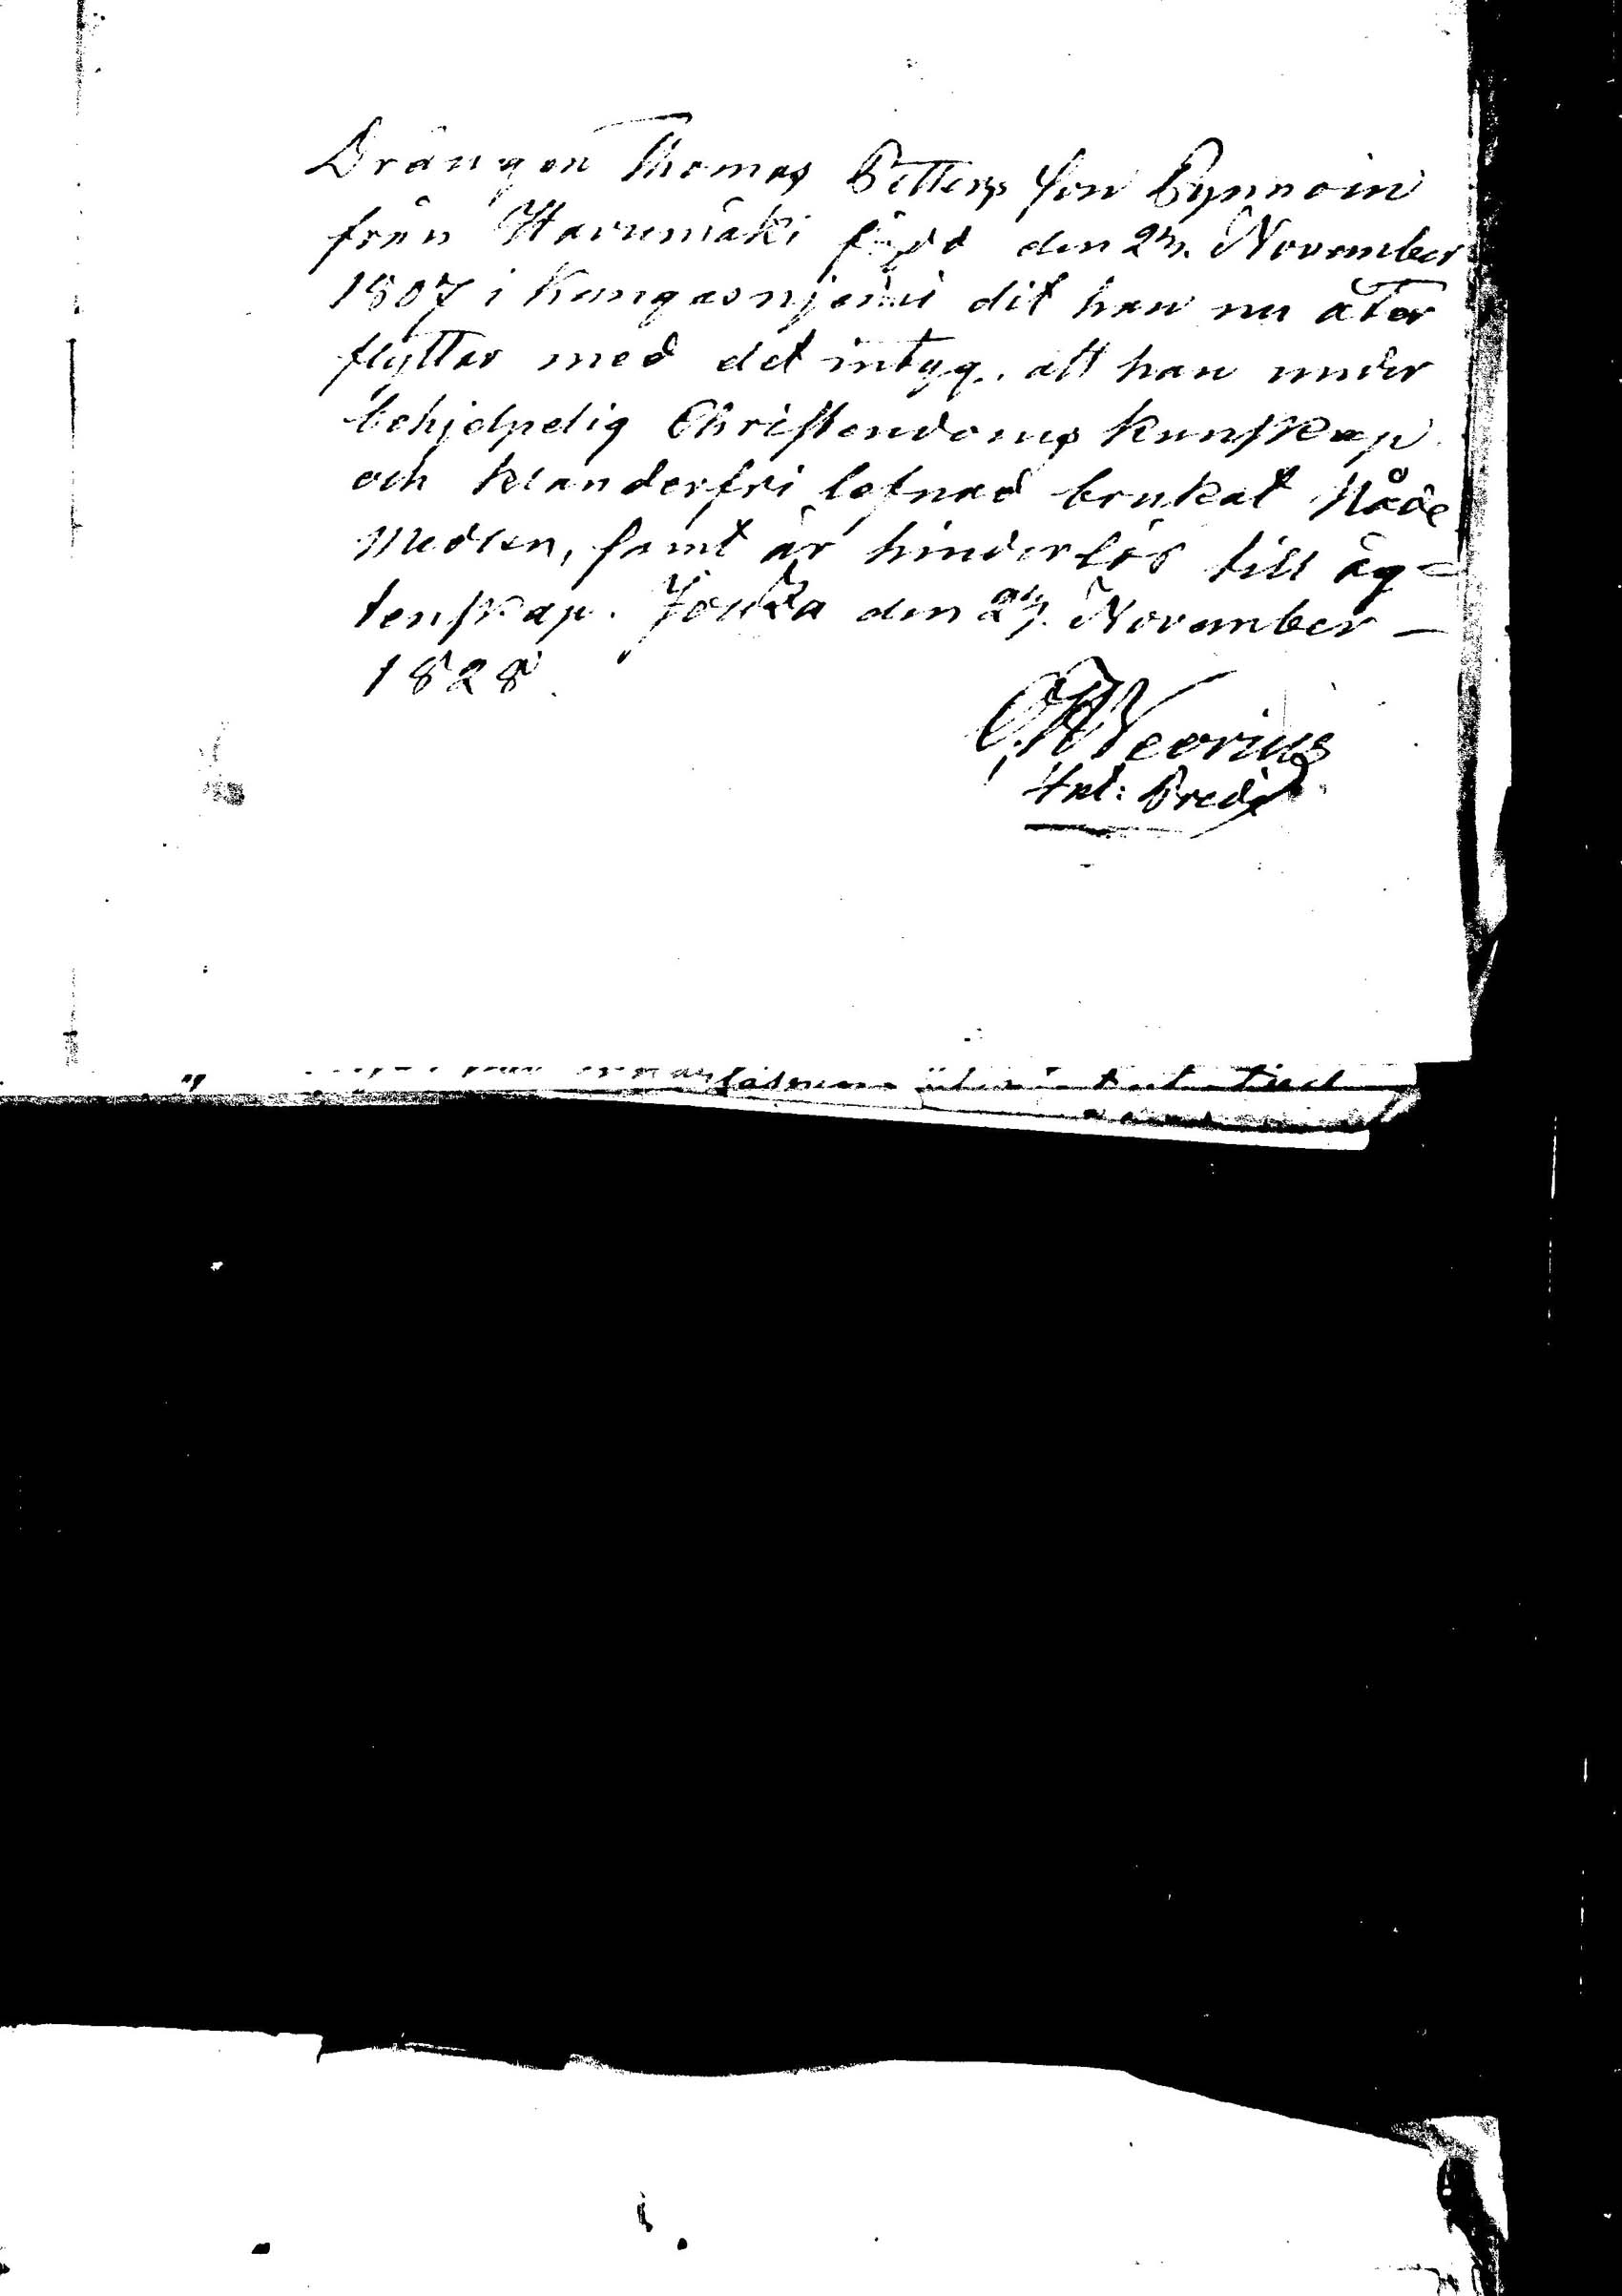 Drängen Thomas Petters Son Pynnöin
från Harumäki född den 27. November
1807 i Kangasnjemi dit han nu åter
flyttar med det intyg, att han under
behjelpelig Christendoms kunskap
och klanderfri lefnad brukat Nåde
Medlen, samt är hinderlös till äg=
tenskap. Jouka den 27. November —
1828.
Neorius
Pred: